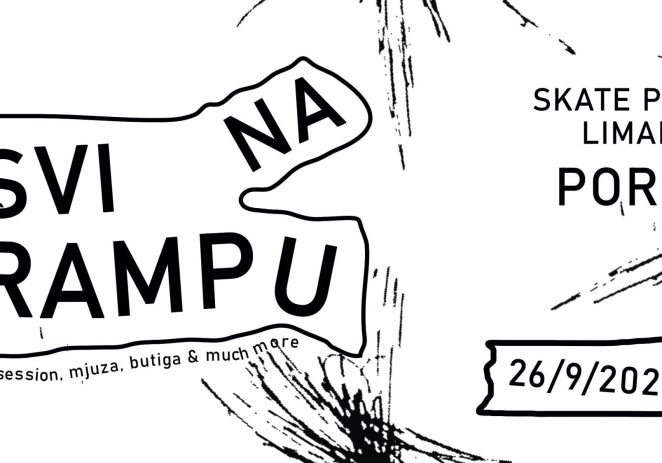 SVI NA
RAMPU
session, mjuza, butiga & much more
SKATE P
LIMA
POR
26/9/202